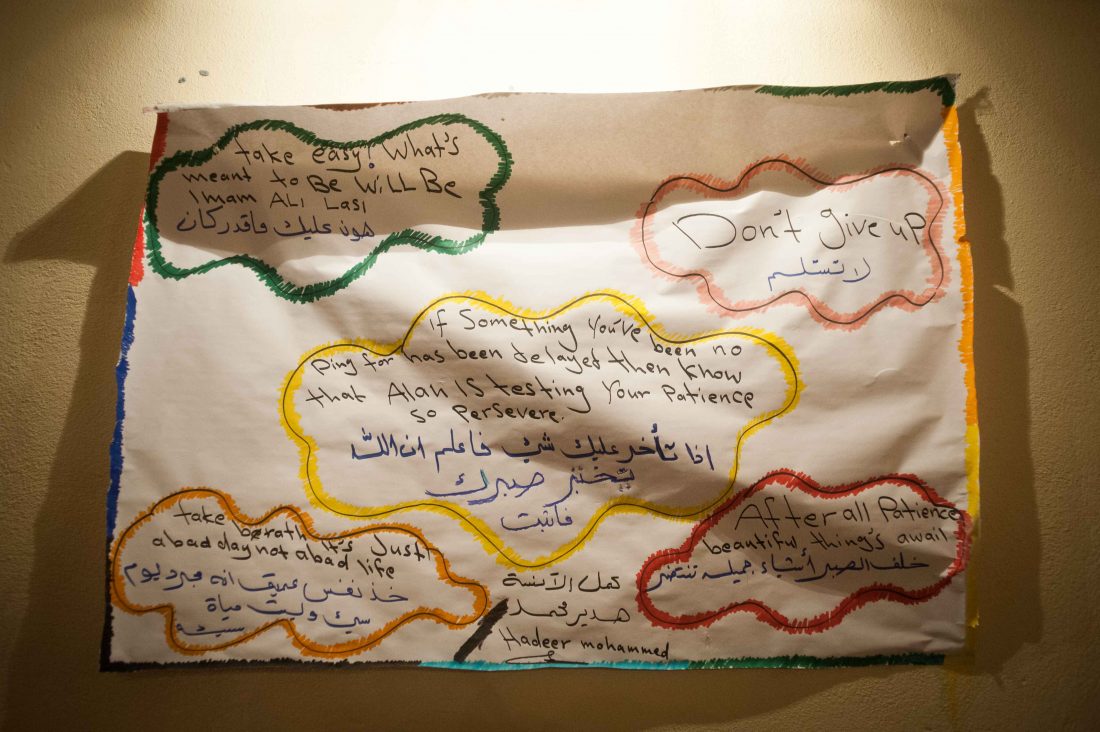 take easy! What's
meant to Be Will Be
Imam ALi Lasi
هون عليك فاقدر كان
Don't give up
لا تستلم
if Something You've been no
Ping for has been delayed then know
that Alah is testing Your Patience
so Persevere.
اذا تأخر عليك شئ فاعلم ان الله
يختبر صبرك
فاثبت
take berath it's Just
abad day not abad life
خذ نفس عميق انه مجرد يوم
سيء وليت حياة
سيئة
After all Patience
beautiful thing's await
خلف الصبر أشياء جميله تنتضر
عمل الآنسة
هدير محمد
Hadeer mohammed